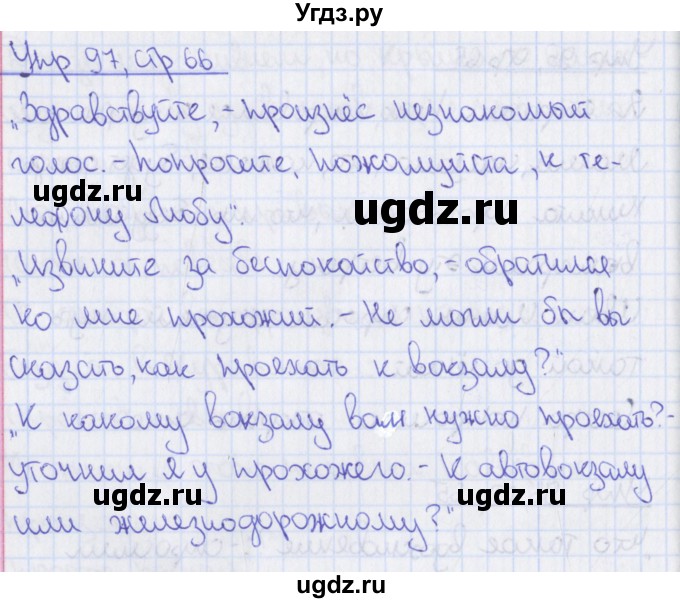 Угдз.ру
Упр 97, стр 66
„Здравствуйте, - произнёс незнакомый
голос. - Попросите, пожалуйста, к те-
ugdz.ru ugdz.ru
лефону Любу".
„Извините за беспокойство, - обратился
ugdz.ru
ко мне прохожий. - Не могли бы вы
сказать, как проехать к вокзалу?"
ugdz.ru
„К какому вокзалу вам нужно проехать? -
ugdz.ru
уточнил я у прохожего. - К автовокзалу
ugdz.ru ugdz.ru
или железнодорожному?"
ugdz.ru